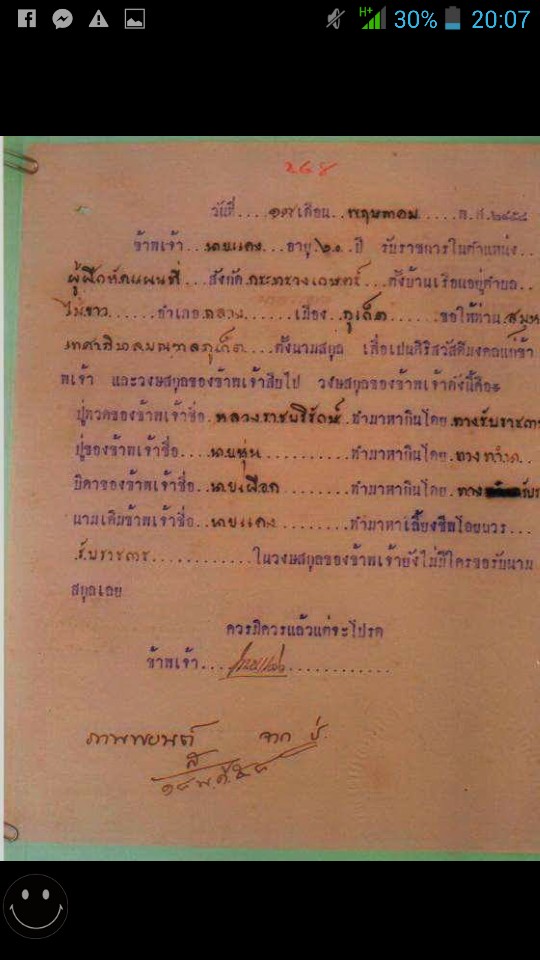 H+ 30% 20:07
๒๖๘
วันที่....๑๗ เดือน..พฤษภาคม.....พ.ศ.๒๔๕๘
ข้าพเจ้า..นายแดง...อายุ ๒๐ ปี รับราชการในตำแหน่ง..
ผู้ฝึกหัดแผนที่...สังกัด.กระทรวงเกษตร์...ตั้งบ้านเรือนอยู่ตำบล..
ไม้ขาว......อำเภอ.ถลาง......เมือง..ภูเก็ต......ขอให้ท่าน.สมุห
เทศาภิบาลมณฑลภูเก็ต....ตั้งนามสกุล เพื่อเปนศิริสวัสดิมงคลแก่ข้า
พเจ้า และวงษสกุลของข้าพเจ้าสืบไป วงษสกุลของข้าพเจ้าดังนี้คือ
ปู่ทวดของข้าพเจ้าชื่อ.หลวงราชบริรักษ์.ทำมาหากินโดย.ทางรับราชการ
ปู่ของข้าพเจ้าชื่อ...นายหุ่น..........ทำมาหากินโดย.ทางทำนา..
บิดาของข้าพเจ้าชื่อ..นายเผือก........ทำมาหากินโดย.ทาง รับรา
นามเดิมข้าพเจ้าชื่อ..นายแดง........ทำมาหาเลี้ยงชีพโดยการ...
รับราชการ...........ในวงษสกุลของข้าพเจ้ายังไม่มีใครขอรับนาม
สกุลเลย
ควรมิควรแล้วแต่จะโปรด
ข้าพเจ้า....นายแดง............
ภาพพยนต์ จาก